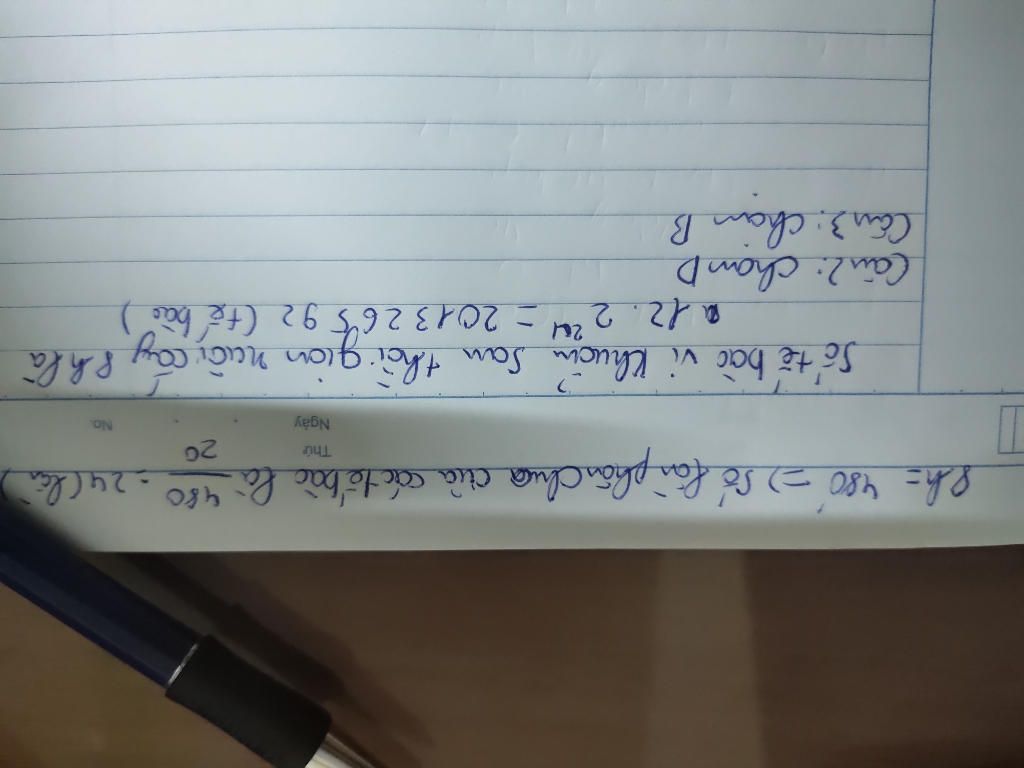 8h = 480' => số lần phân chia của các tế bào là 480/20 = 24 (lần)
Thứ
Ngày
No.
Số tế bào vi khuẩn sau thời gian nuôi cấy 8h là
12 . 2^24 = 201326592 (tế bào)
Câu 2: chọn D
Câu 3: chọn B